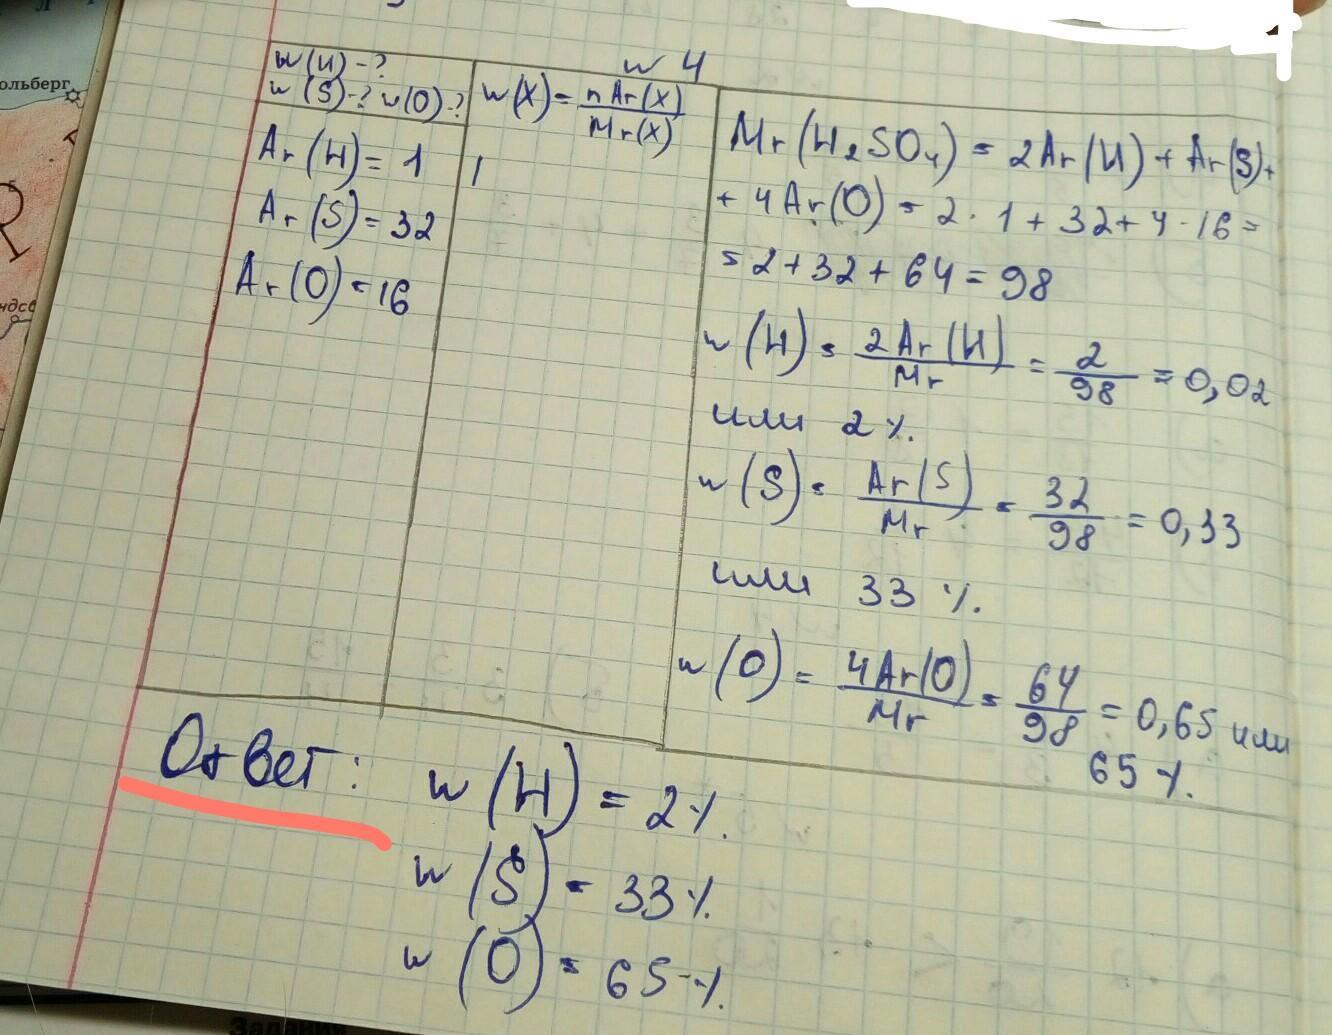 ольберг
w 4
w(H)-?
w(S)-? w(O)-?
Ar(H)= 1
Ar(S)=32
Ar(O)=16
w(X)= n Ar(X) / Mr(X)
Mr(H₂SO₄) = 2Ar(H) + Ar(S)+
+ 4Ar(O) = 2·1+32+4·16=
=2+32+64=98
w(H) = 2Ar(H) / Mr = 2 / 98 = 0,02
или 2%.
w(S) = Ar(S) / Mr = 32 / 98 = 0,33
или 33%.
w(O) = 4Ar(O) / Mr = 64 / 98 = 0,65 или
65%.
Ответ: w(H) = 2%.
w(S) = 33%.
w(O) = 65%.
Задания